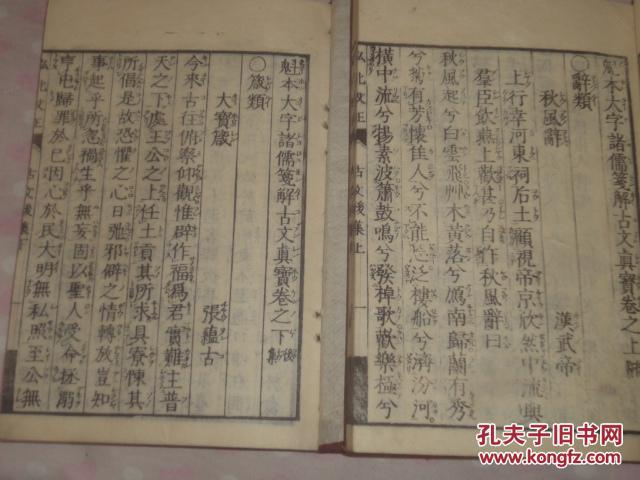 魁本大字諸儒箋解古文真寶卷之上
○辭類
秋風辭 漢武帝
上行幸河東祠后土顧視帝京欣然中流與
群臣飲燕上歡甚乃自作秋風辭曰
秋風起兮白雲飛草木黃落兮鴈南歸蘭有秀
兮菊有芳懷佳人兮不能忘泛樓船兮濟汾河
橫中流兮揚素波簫鼓鳴兮發棹歌歡樂極兮
古文後集上
一
魁本大字諸儒箋解古文真寶卷之下 後集
○箴類
大寶箴 張蘊古
今來古往俯察仰觀惟辟作福為君實難主普
天之下處王公之上任土貢其所求具寮陳其
所倡是故恐懼之心日弛邪僻之情轉放豈知
事起乎所忽禍生乎無妄固以聖人受命拯溺
亨屯歸罪於己因心於民大明無私照至公無
古文後集下
孔夫子旧书网
www.kongfz.com